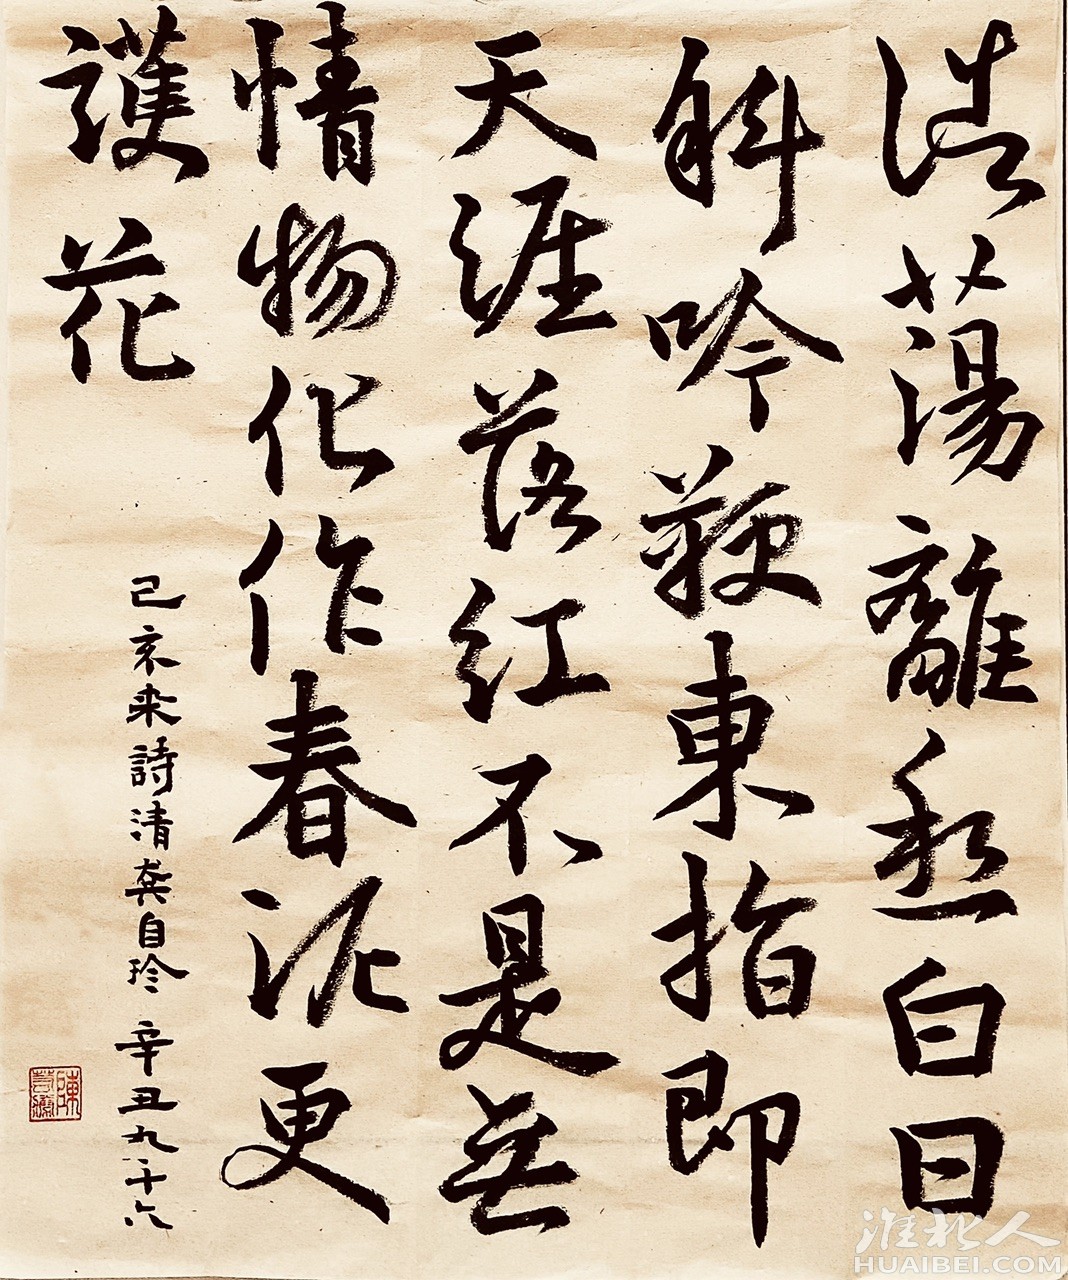 浩蕩離愁白日
斜吟鞭東指即
天涯落紅不是無
情物化作春泥更
護花
己亥杂詩清龚自珍 辛丑九十六
淮北人
HUAIBEI.COM